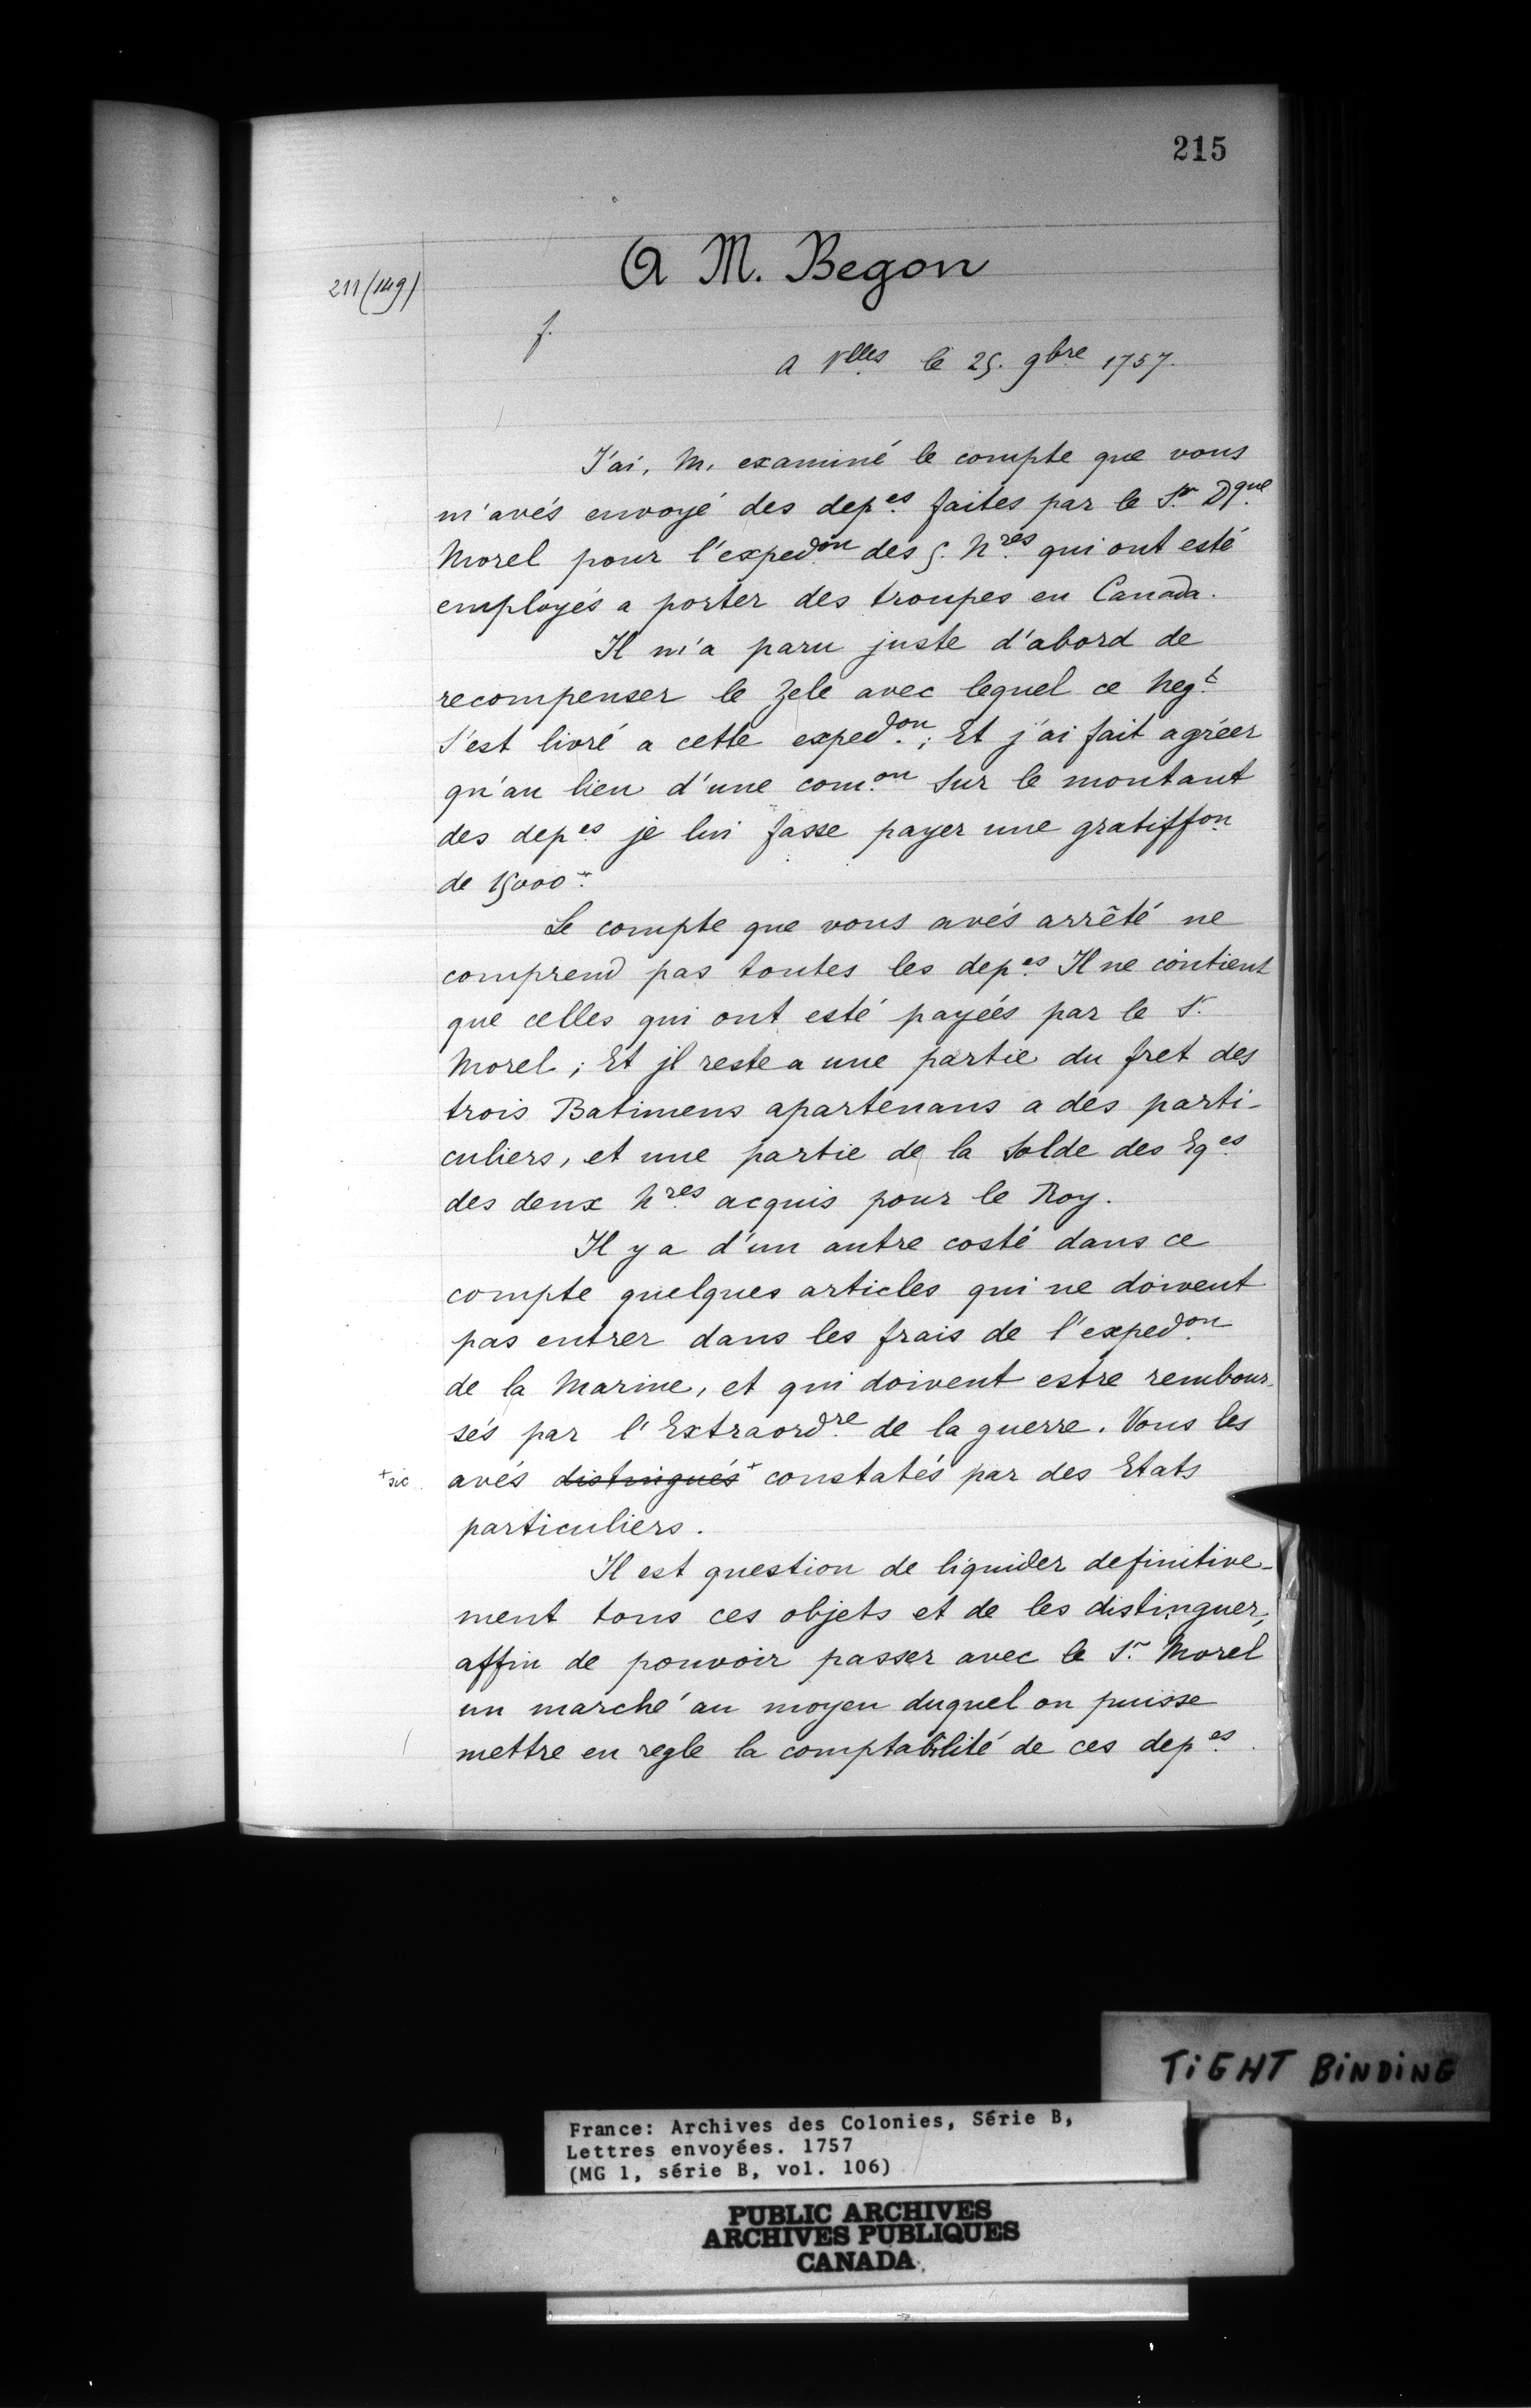 215
A M. Begon
211 (149)
f.
a Vlles le 25. 9bre 1757.
J'ai, M, examiné le compte que vous
m'avés envoyé des depes faites par le Sr Dque
Morel pour l'expedon des 5. Nres qui ont esté
employés a porter des troupes en Canada.
Il m'a paru juste d'abord de
recompenser le Zele avec lequel ce Negt
S'est livré a cette expedon; Et j'ai fait agréer
qu'au lieu d'une comon Sur le montant
des depes je lui fasse payer une gratiffon
de 15000.
Le compte que vous avés arrêté ne
comprend pas toutes les depes Il ne contient
que celles qui ont esté payéés par le Sr
Morel; Et jl reste a une partie du fret des
trois Batimens apartenans a des parti-
culiers, et une partie de la Solde des Eqes
des deux Nres acquis pour le Roy.
Il y a d'un autre costé dans ce
compte quelques articles qui ne doivent
pas entrer dans les frais de l'expedon
de la Marine, et qui doivent estre rembour-
sés par l'Extraordre de la guerre. Vous les
+sic. avés distingués+ constatés par des Etats
particuliers.
Il est question de liquider definitive-
ment tous ces objets et de les distinguer,
affin de pouvoir passer avec le Sr Morel
un marché au moyen duquel on puisse
mettre en regle la comptabilité de ces depes.
TIGHT BINDING
France: Archives des Colonies, Série B,
Lettres envoyées. 1757
(MG 1, série B, vol. 106)
PUBLIC ARCHIVES
ARCHIVES PUBLIQUES
CANADA